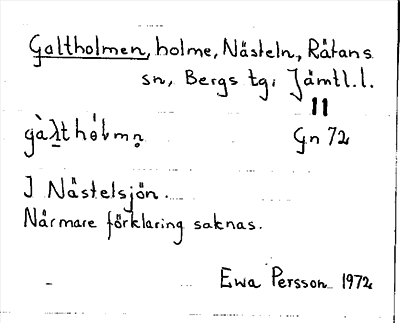 Galtholmen, holme, Nästeln, Rätans
sn, Bergs tg, Jämtl.l.
11
Gn 72
I Nästelsjön.
Närmare förklaring saknas.
Ewa Persson 1972